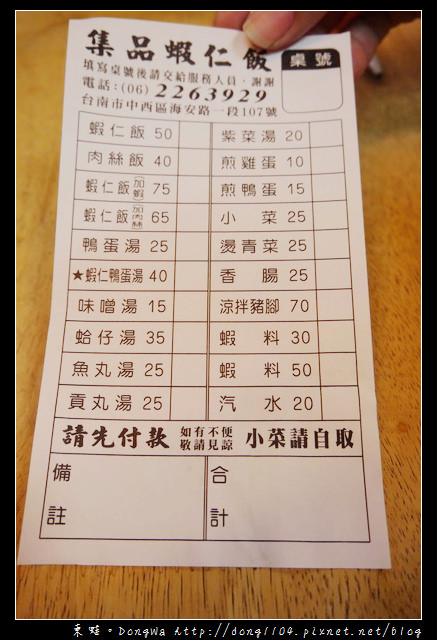 集品蝦仁飯
桌號
填寫桌號後請交給服務人員，謝謝
電話：(06) 2263929
台南市中西區海安路一段107號
蝦仁飯 50 紫菜湯 20
肉絲飯 40 煎雞蛋 10
蝦仁飯(加蝦) 75 煎鴨蛋 15
蝦仁飯(加肉絲) 65 小菜 25
鴨蛋湯 25 燙青菜 25
★蝦仁鴨蛋湯 40 香腸 25
味噌湯 15 涼拌豬腳 70
蛤仔湯 35 蝦料 30
魚丸湯 25 蝦料 50
貢丸湯 25 汽水 20
請先付款 如有不便敬請見諒 小菜請自取
備註 合計
東蛙。DongWa http://dong1104.pixnet.net/blog